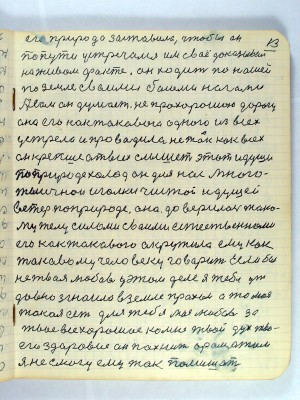 его природа заставила, чтобы он 13
попути встречался им своё доказывал
на живом факте. он ходит по нашей
по земле своими босыми ногами
А сам он думает, не про хорошую дорогу
она его как такового одного из всех
устрела и проводила не так как всех
он крепче стал слышет этот идущи
по природе холод он для нас много-
тысячной иголки чистой идущей
ветер по природе, она доверилась тако-
му телу, силами своими естественными
его как такового окружила ему как
таковому человеку говорит Если бы
не твоя любов у этом деле я тебя уж
давно згноила в земле прахом а то моя
такая сет для тебя моя любов за
твое все хорошое ко мне твой дух тво-
его здоровие он пахнит ароматам
я не смогу ему так помешат